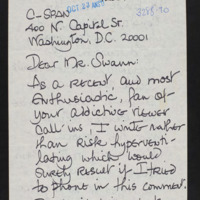 OCT 27
3298-90
C-SPAN
400 N. Capitol St.
Washington, D.C. 20001
Dear Mr. Swann:
As a recent and most
enthusiastic, fan of
your addictive viewer
call-ins, I write rather
than risk hyperventi-
lating which would
surely result if I tried
to phone in this comment.